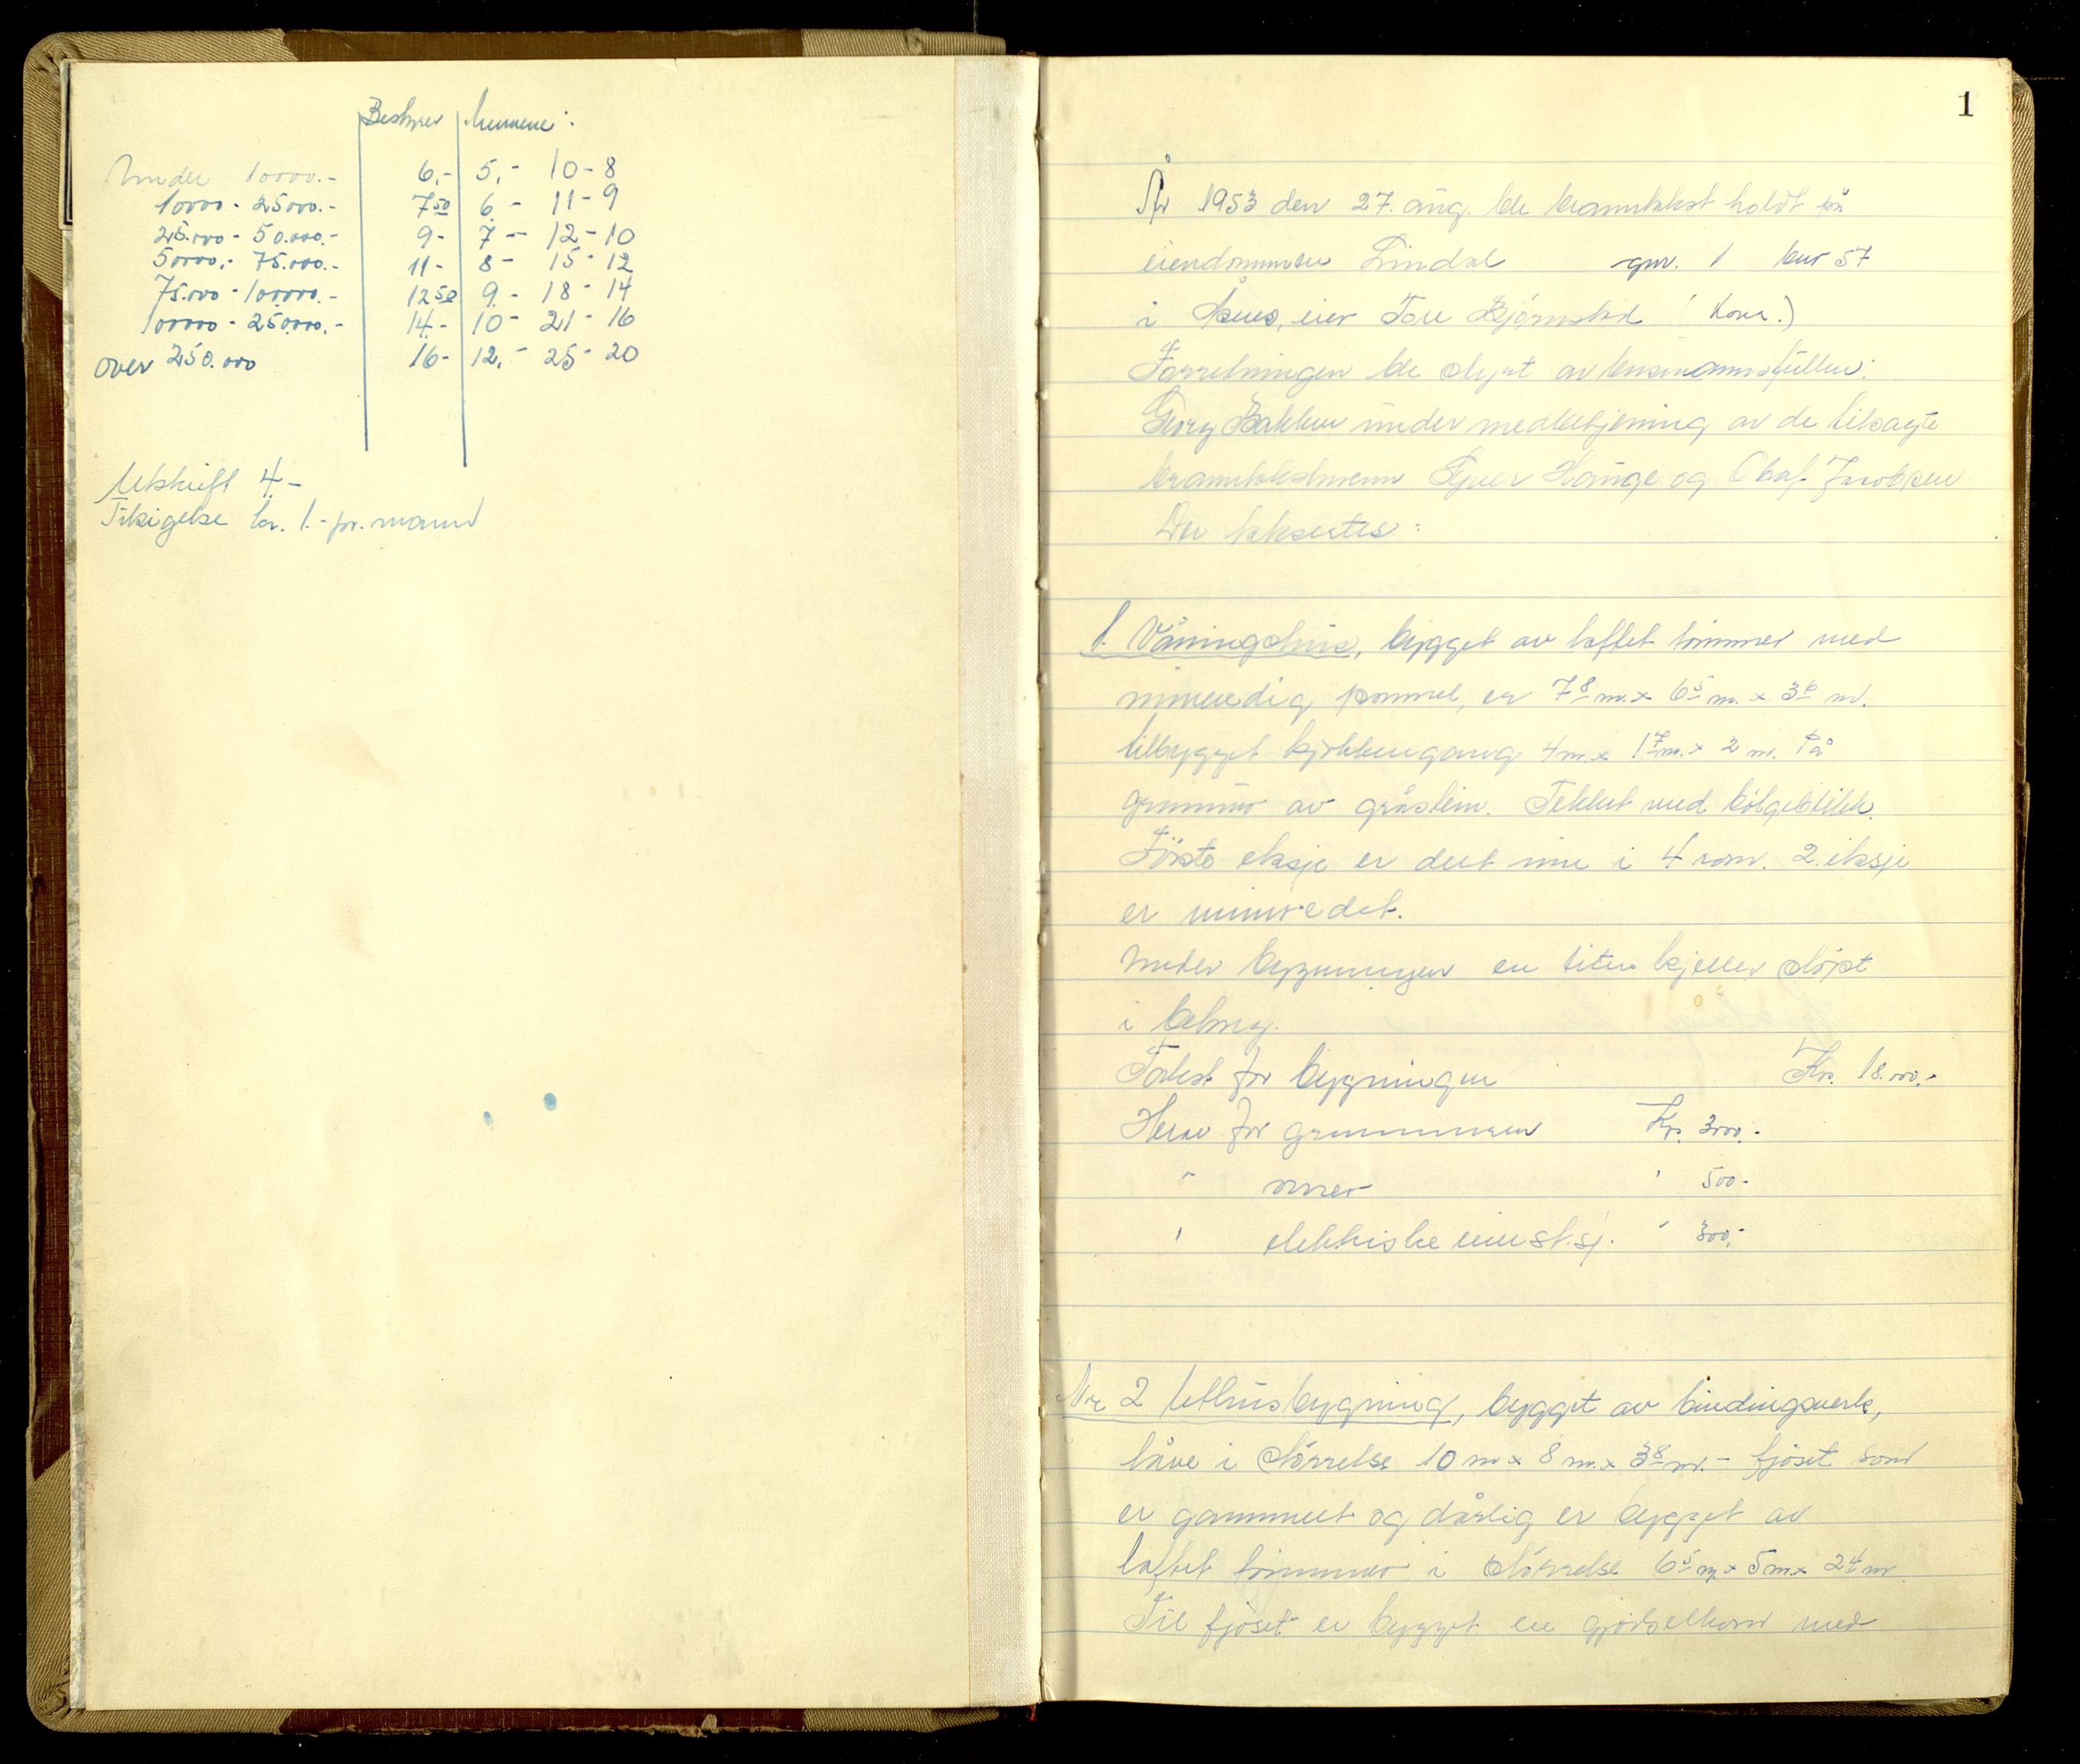 Bestyrer mennene:
Under 10000.- 6,- 5,- 10-8
10000 - 25000.- 7 50 6 - 11-9
25.000 - 50.000.- 9- 7- 12-10
50000,- 75.000.- 11- 8- 15-12
75.000 - 100.000.- 12 50 9.- 18-14
100000 - 250000.- 14.- 10- 21-16
over 250.000 16- 12,- 25-20
Utskrift 4-
Tilsigelse kr. 1.- pr. mann
1
År 1953 den 27. aug. ble branntakst holdt på
eiendommen Lindal gnr. 1 bnr 57
i eier Tore Bjørnstad
Forretningen ble styrt av lensmannsfullm.
Georg Bakken under medbetjening av de tilsagte
branntakstmenn Hauge og Olaf Jacobsen
Der takseres:
1. Våningshus, bygget av laftet tømmer med
utvendig pannel, er 7 8 m. x 6 5 m. x 3 6 m.
tilbygget kjøkkengang 4 m. x 1 7 m. x 2 m. På
grunnmur av gråstein. Tekket med bølgeblikk.
Første etasje er delt inn i 4 rom. 2. etasje
er uinnredet.
Under bygningen en liten kjeller støpt
i betong.
Takst for bygningen Kr. 18.000.-
Herav for grunnmuren Kr. 3000.-
" ovner " 500.-
" elektriske innst.sj. " 300,-
Nr 2 Uthusbygning, bygget av bindingsverk,
låve i størrelse 10 m x 8 m. x 3 8 m. - fjøset som
er gammelt og dårlig er bygget av
laftet tømmer i størrelse 6 5 m x 5 m x 2 4 m
Til fjøset er bygget en gjødselkum med